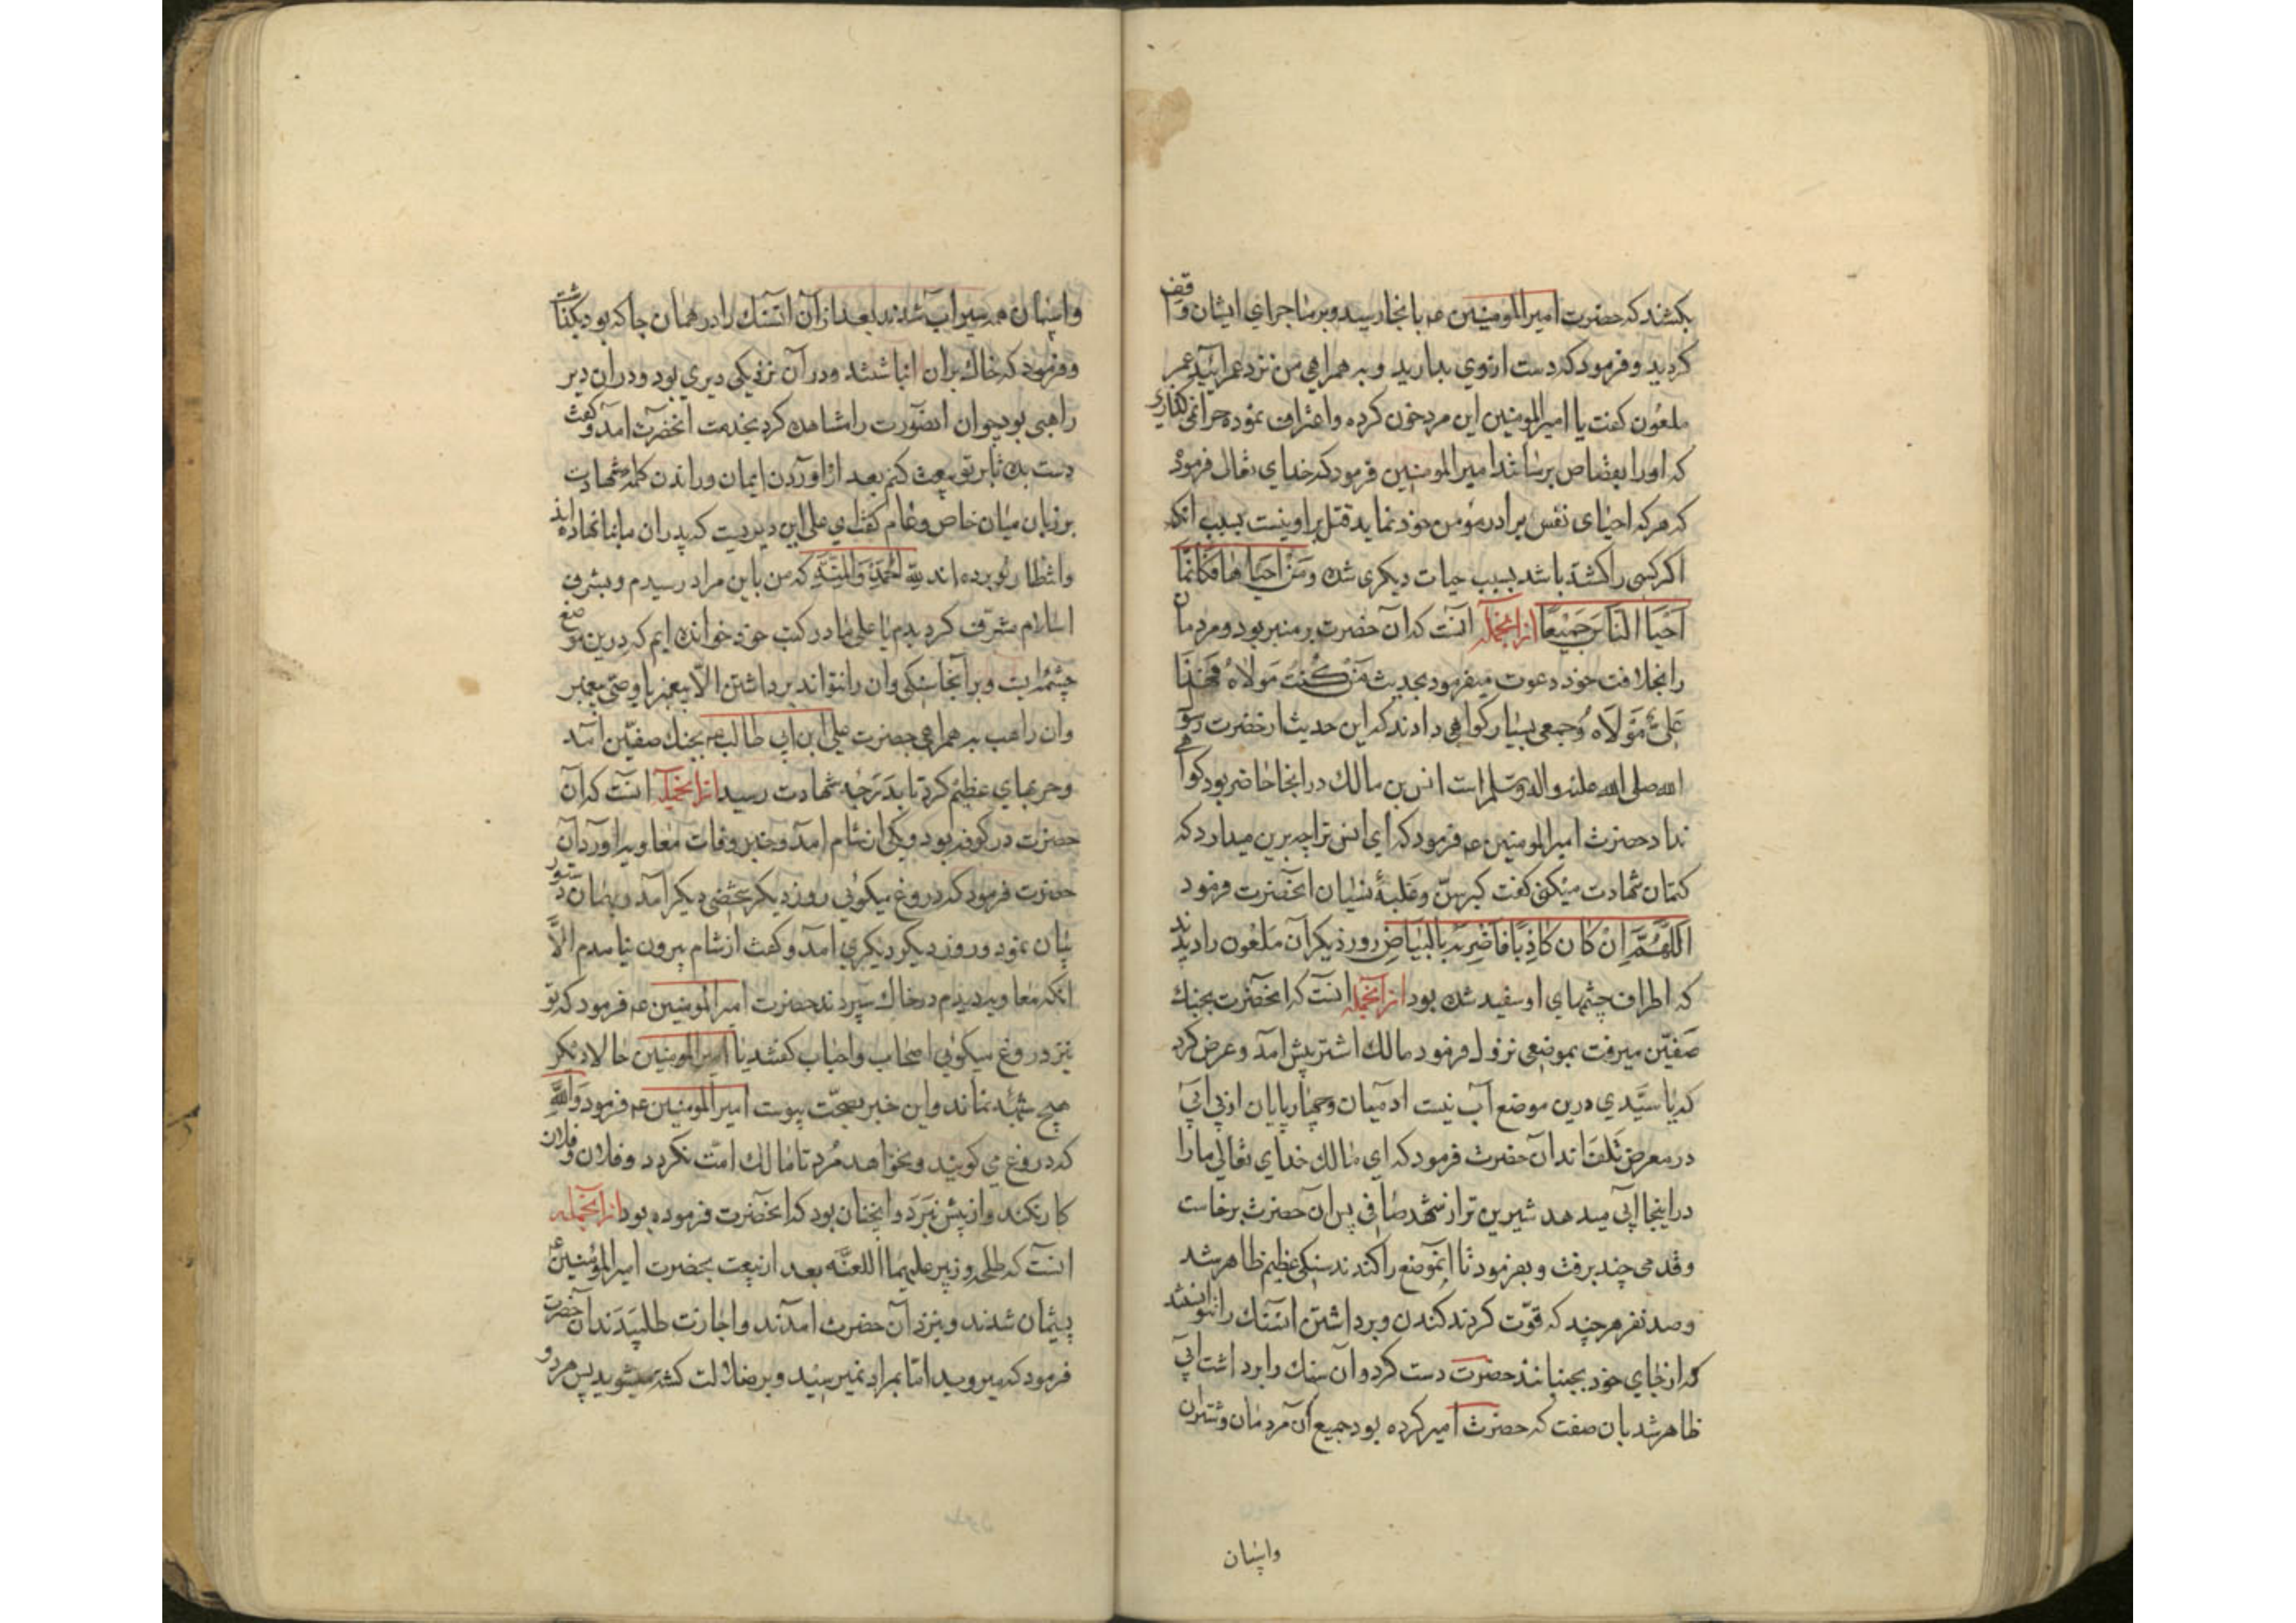 بکشند که حضرت امیرالمومنین عه بانجا رسید و بر ماجرای ایشان واقف
کردید و فرمود که دست از وی بدارید و به همراهی من نزد عمر ایید عمر
ملعون کفت یا امیرالمومنین این مرد خون کرده و اعتراف نموده چرا نمی کذاری
که او را بقصاص برسانند امیرالمومنین فرمود که خدای تعالی فرمود
که هر که احیای نفس برادر مؤمن خود نماید قتل بر او نیست بسبب انکه
اکر کسی را کشته باشد بسبب حیات دیکری شده وَمَنْ اَحیَاهَا فَکَاَنَّمَا
اَحْیَا النَّاسَ جَمیْعًا از انجمله آنست که آن حضرت بر منبر بود و مردمان
را بخلافت خود دعوت میفرمود بحدیث مَنْ کُنْتُ مَولَاهُ فَهٰذَا
عَلِیٌّ مَوْلَاهُ و جمعی بسیار کواهی دادند که این حدیث از حضرت رسول
الله صلی الله علیه و اله وسلم است انس بن مالک در انجا حاضر بود کواهی
نداد حضرت امیرالمومنین عه فرمود که ای انس ترا چه برین میدارد که
کتمان شهادت میکنی کفت کبر سنّ و غلبهٔ نسیان انحضرت فرمود
اَللّهُمَّ اِنْ کَانَ کَاذِبًا فَاضْرِبْهُ بِالبَیَاضِ روز دیکر آن ملعون را دیدند
که اطراف چشمهای او سفید شده بود از انجمله انست که انحضرت بجنک
صفّین میرفت بموضعی نزول فرمود مالک اشتر پیش آمد و عرض کرد
که یا سیّدی درین موضع آب نیست ادمیان و چهارپایان از بی ابی
در معرض تلف اند آن حضرت فرمود که ای مالک خدای تعالی ما را
در اینجا ابی میدهد شیرین تر از شهد صافی پس ان حضرت برخاست
و قدمی چند برفت و بفرمود تا انموضع را کندند سنکی عظیم ظاهر شد
و صد نفر هر چند که قوّت کردند کندن و برداشتن انسنک را نتوانستند
که از جای خود بجنبانند حضرت دست کرد و آن سنک را برداشت ابی
ظاهر شد بان صفت که حضرت امیر کرده بود جمیع آن مردمان و شتران
واسپان
واسپان همه سیراب شدند بعد از آن انسنک را در همان جا که بود بکذاشت
و فرمود که خاک بران انباشتند و در آن نزدیکی دیری بود و در ان دیر
راهبی بود چون انصورت را مشاهده کرد بخدمت انحضرت آمد و کفت
دست بده تا بر تو بیعت کنم بعد از اوردن ایمان و راندن کلمه شهادت
بر زبان میان خاص و عام کفت ای علی این دیریست که پدران ما بنا نهاده اند
و انتظار تو برده اند لله اَلحَمْدُ وَالمِنَّه که من باین مراد رسیدم و بشرف
اسلام مشرف کردیدم یا علی ما در کتب خود خوانده ایم که درین موضع
چشمه ایست و بر آنجا سنکی و ان را نتواند برداشتن الّا پیغمبر یا وصی پیغمبر
و ان راهب به همراهی حضرت علی ابن ابی طالب عه بجنک صفّین آمد
و حربهای عظیم کرد تا بدرجه شهادت رسید از انجمله انست که آن
حضرت در کوفه بود و یکی از شام امد و خبر وفات معاویه اورد آن
حضرت فرمود که دروغ میکویی روز دیکر شخصی دیکر آمد و بهمان دستور
بیان نمود و روز دیکر دیکری امد و کفت از شام بیرون نیامدم الّا
انکه معاویه دیدم در خاک سپردند حضرت امیرالمومنین عه فرمود که تو
نیز دروغ میکویی اصحاب و احباب کفتند یا امیرالمومنین حالا دیکر
هیچ شبهه نماند و این خبر بصحّت پیوست امیرالمومنین عه فرمود وَاللّهِ
که دروغ می کویند و نخواهد مُرد تا مالک امّت نکردد و فلان و فلان
کار نکند و از پیش نبرَد و انچنان بود که انحضرت فرموده بود از انجمله
انست که طلحه و زبیر علیهما اللعنه بعد از بیعت بحضرت امیرالمؤمنین ع
پشیمان شدند و بنزد آن حضرت امدند و اجازت طلبیدند ان حضرت
فرمود که میروید امّا بمراد نمیرسید و بر ضلالت کشته میشوید پس هر دو